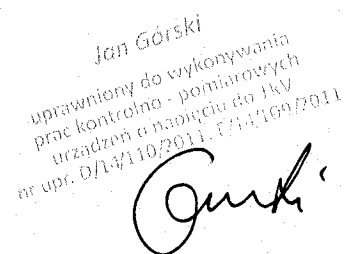 Jan Górski
uprawniony do wykonywania
prac kontrolno - pomiarowych
urządzeń o napięciu do 1kV
nr upr. D/14/110/2011, E/14/109/2011